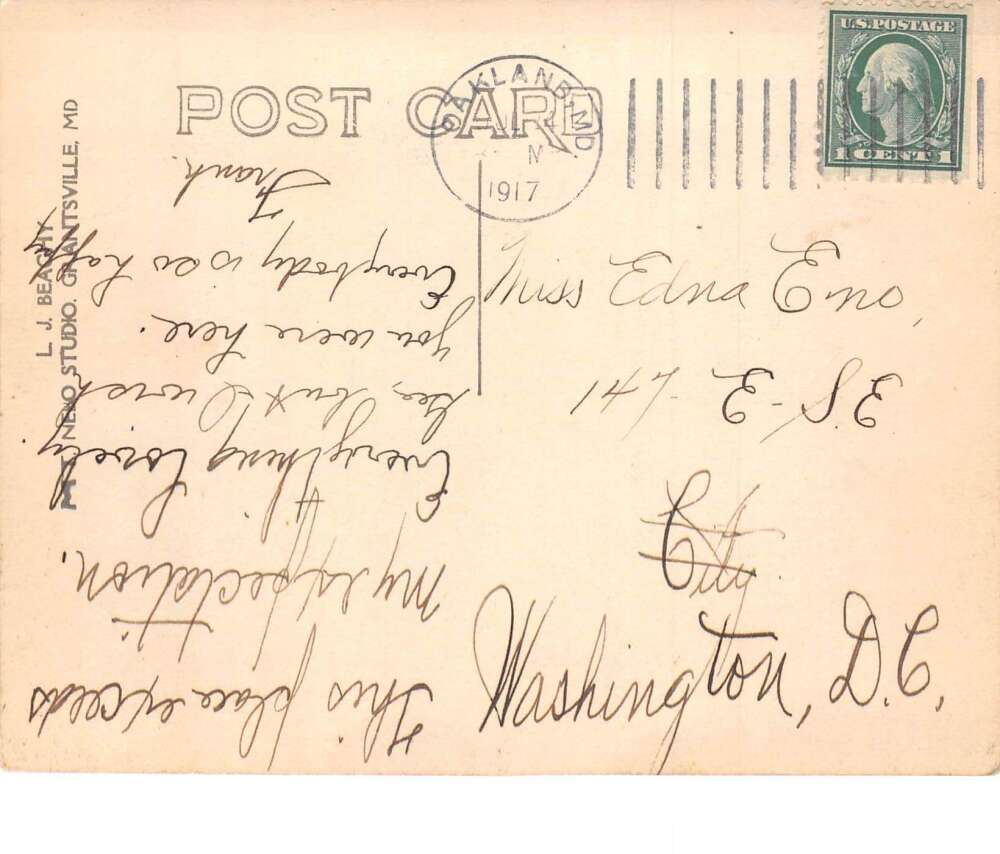 POST CARD
OAKLAND, MD
M
1917
U.S. POSTAGE
1 CENT 1
L. J. BEACHY
STUDIO. GRANTSVILLE, MD
Miss Edna Eno,
147- E - St
City
Washington, D.C.
This place exceeds
my expectation.
Everything lovely
Gee, but I wish
you were here.
Everybody is so happy
Frank.